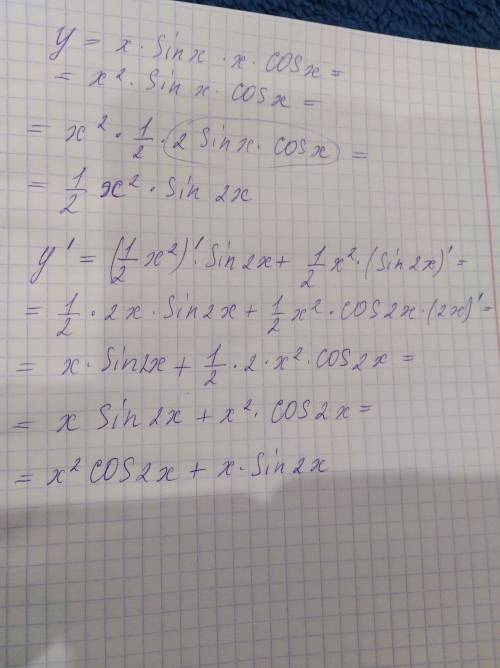 y = x · sin x · x · cos x =
= x² · sin x · cos x =
= x² · 1/2 · 2 sin x · cos x =
= 1/2 x² · sin 2x
y' = (1/2 x²)' · sin 2x + 1/2 x² · (sin 2x)' =
= 1/2 · 2x · sin 2x + 1/2 x² · cos 2x · (2x)' =
= x · sin 2x + 1/2 · 2 · x² · cos 2x =
= x sin 2x + x² · cos 2x =
= x² cos 2x + x · sin 2x